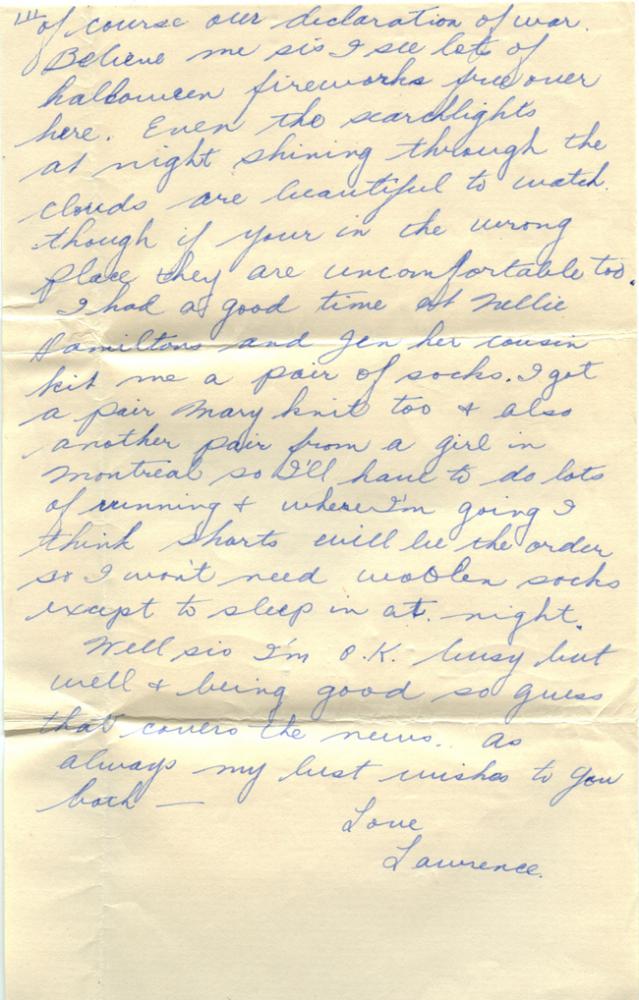 III
of course our declaration of war.
Believe me sis I see lots of
halloween fireworks free over
here. Even the searchlights
at night shining through the
clouds are beautiful to watch.
though if your in the wrong
place they are uncomfortable too.
I had a good time at Nellie
Hamiltons and Jen her cousin
kit me a pair of socks. I got
a pair Mary knit too & also
another pair from a girl in
Montreal so I'll have to do lots
of running & where I'm going I
think shorts will be the order
so I won't need woolen socks
except to sleep in at. night.
Well sis I'm O.K. busy but
well & being good so guess
that covers the news. as
always my best wishes to you
both —
Love
Lawrence.